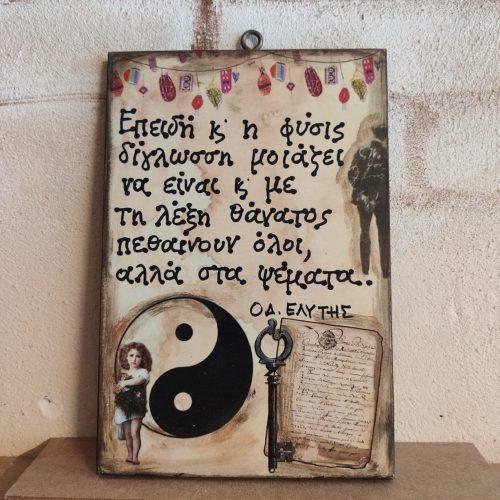 Επειδή κ' η φύσις
δίγλωσση μοιάζει
να είναι κ' με
τη λέξη θάνατος
πεθαίνουν όλοι,
αλλά στα ψέματα..
Ο Δ. ΕΛΥΤΗΣ